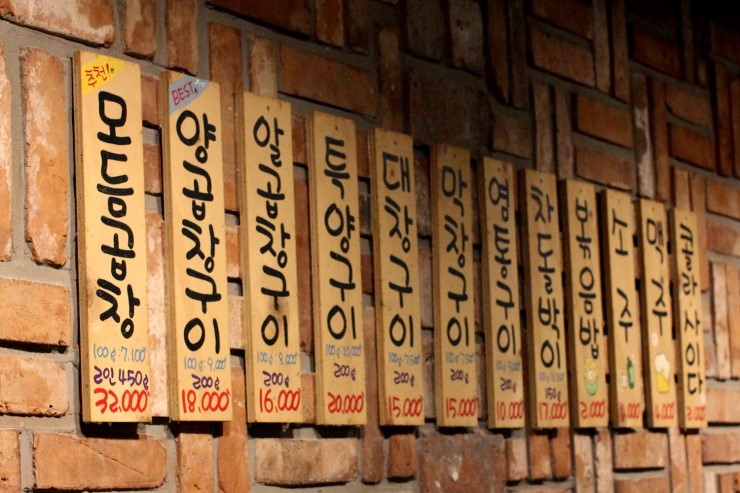 추천!
모듬곱창
100g:7,100
2인 450g
32,000
BEST
양곱창구이
100g:9,000
200g
18,000
알곱창구이
100g:8,000
200g
16,000
특양구이
100g:10,000
200g
20,000
대창구이
100g:7,500
200g
15,000
막창구이
100g:7,500
200g
15,000
염통구이
100g:5,000
200g
10,000
차돌박이
150g
17,000
볶음밥
2,000
소주
4,000
맥주
4,000
콜라사이다
2,000